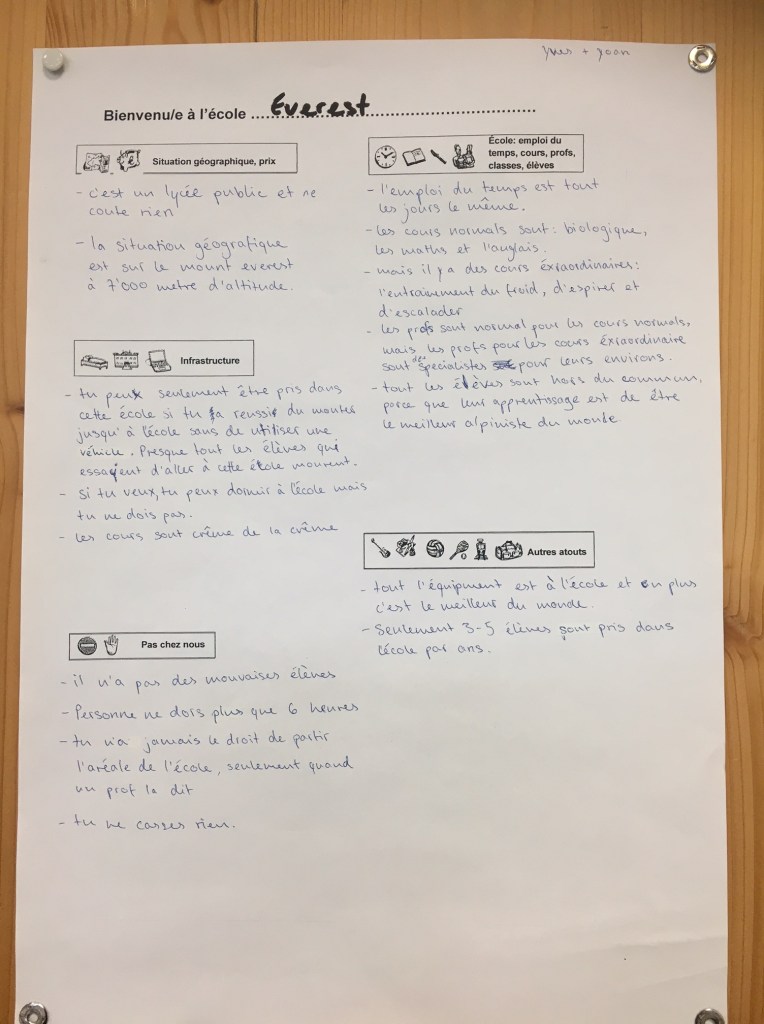 Yves + Yoan
Bienvenu/e à l'école Everest
Situation géographique, prix
- c'est un lycée public et ne
coute rien
- la situation géografique
est sur le mount everest
à 7'000 metre d'altitude.
Infrastructure
- tu peux seulement être pris dans
cette école si tu a reussir du monter
jusqu'à l'école sans de utiliser une
véhicle. Presque tout les élèves qui
essayent d'aller à cette école mourent.
- si tu veux, tu peux dormir à l'école mais
tu ne dois pas.
- les cours sont crême de la crême
Pas chez nous
- il n'a pas des mouvaises élèves
- Personne ne dors plus que 6 heures
- tu n'a jamais le droit de partir
l'aréale de l'école, seulement quand
un prof le dit
- tu ne casses rien.
École: emploi du
temps, cours, profs,
classes, élèves
- l'emploi du temps est tout
les jours le même.
- les cours normals sont: biologique,
les maths et l'anglais.
- mais il y a des cours éxraordinaires:
l'entraînement du froid, d'espirer et
d'escalader
- les profs sont normal pour les cours normals,
mais les profs pour les cours éxraordinaire
sont des specialistes pour leurs environs.
- tout les élèves sont hors du commun,
parce que leur apprentissage est de être
le meilleur alpiniste du monde
Autres atouts
- tout l'équipment est à l'école et en plus
c'est le meilleur du monde.
- Seulement 3-5 élèves sont pris dans
l'école par ans.